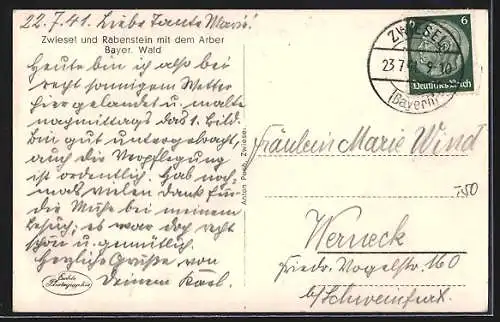 22.7.41. Liebe Tante Marie!
Zwiesel und Rabenstein mit dem Arber
Bayer. Wald
Heute bin ich also bei
recht sonnigem Wetter
hier gelandet u. malte
nachmittags das 1. Bild.
Bin gut untergebracht,
auch die Verpflegung
ist ordentlich. Hab noch-
mals vielen Dank für
die Mühe bei meinem
Besuch; es war doch recht
schön u. gemütlich.
Herzliche Grüße von
Deinem Karl.
Echte
Photographie
Anton Pech, Zwiesel.
ZWIESEL
23.7.41
(Bayern)
6
Deutsches Reich
Fräulein Marie Wind
Werneck
Friedr. Vogelstr. 160
b/Schweinfurt.